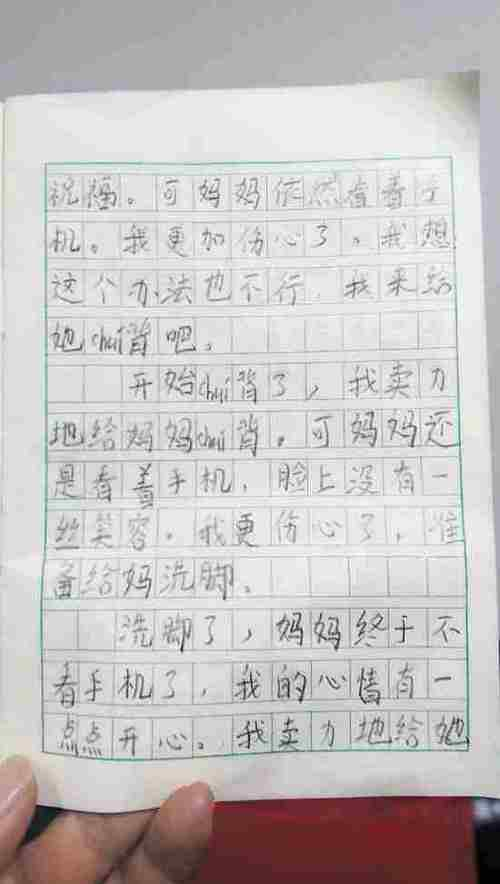 祝福。可妈妈依然看着手
机。我更加伤心了。我想
这个办法也不行，我来给
她chuí背吧。
开始chuí背了，我卖力
地给妈妈chuí背。可妈妈还
是看着手机，脸上没有一
丝笑容。我更伤心了，准
备给妈洗脚。
洗脚了，妈妈终于不
看手机了，我的心情有一
点点开心。我卖力地给她